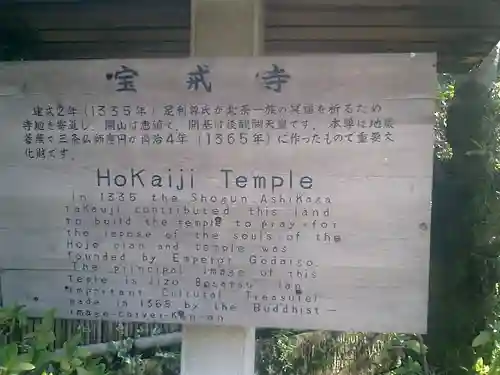 宝戒寺
建武2年(1335年)足利尊氏が北条一族の冥福を祈るため
寺地を寄進し、開山は恵鎮で、開基は後醍醐天皇です。本尊は地蔵
菩薩で三条仏師 円が貞治4年(1365年)に作ったもので重要文
化財です。
HoKaiji Temple
In 1335 the Shogun Ashikaga
Takauji contributed this land
to build the temple to pray for
the repose of the souls of the
Hojo clan and temple was
founded by Emperor Godaigo.
The principal image of this
Temple is Jizo Bosatsu (an
important Cultural Treasure)
made in 1365 by the Buddhist-
image-carver-Ken-on